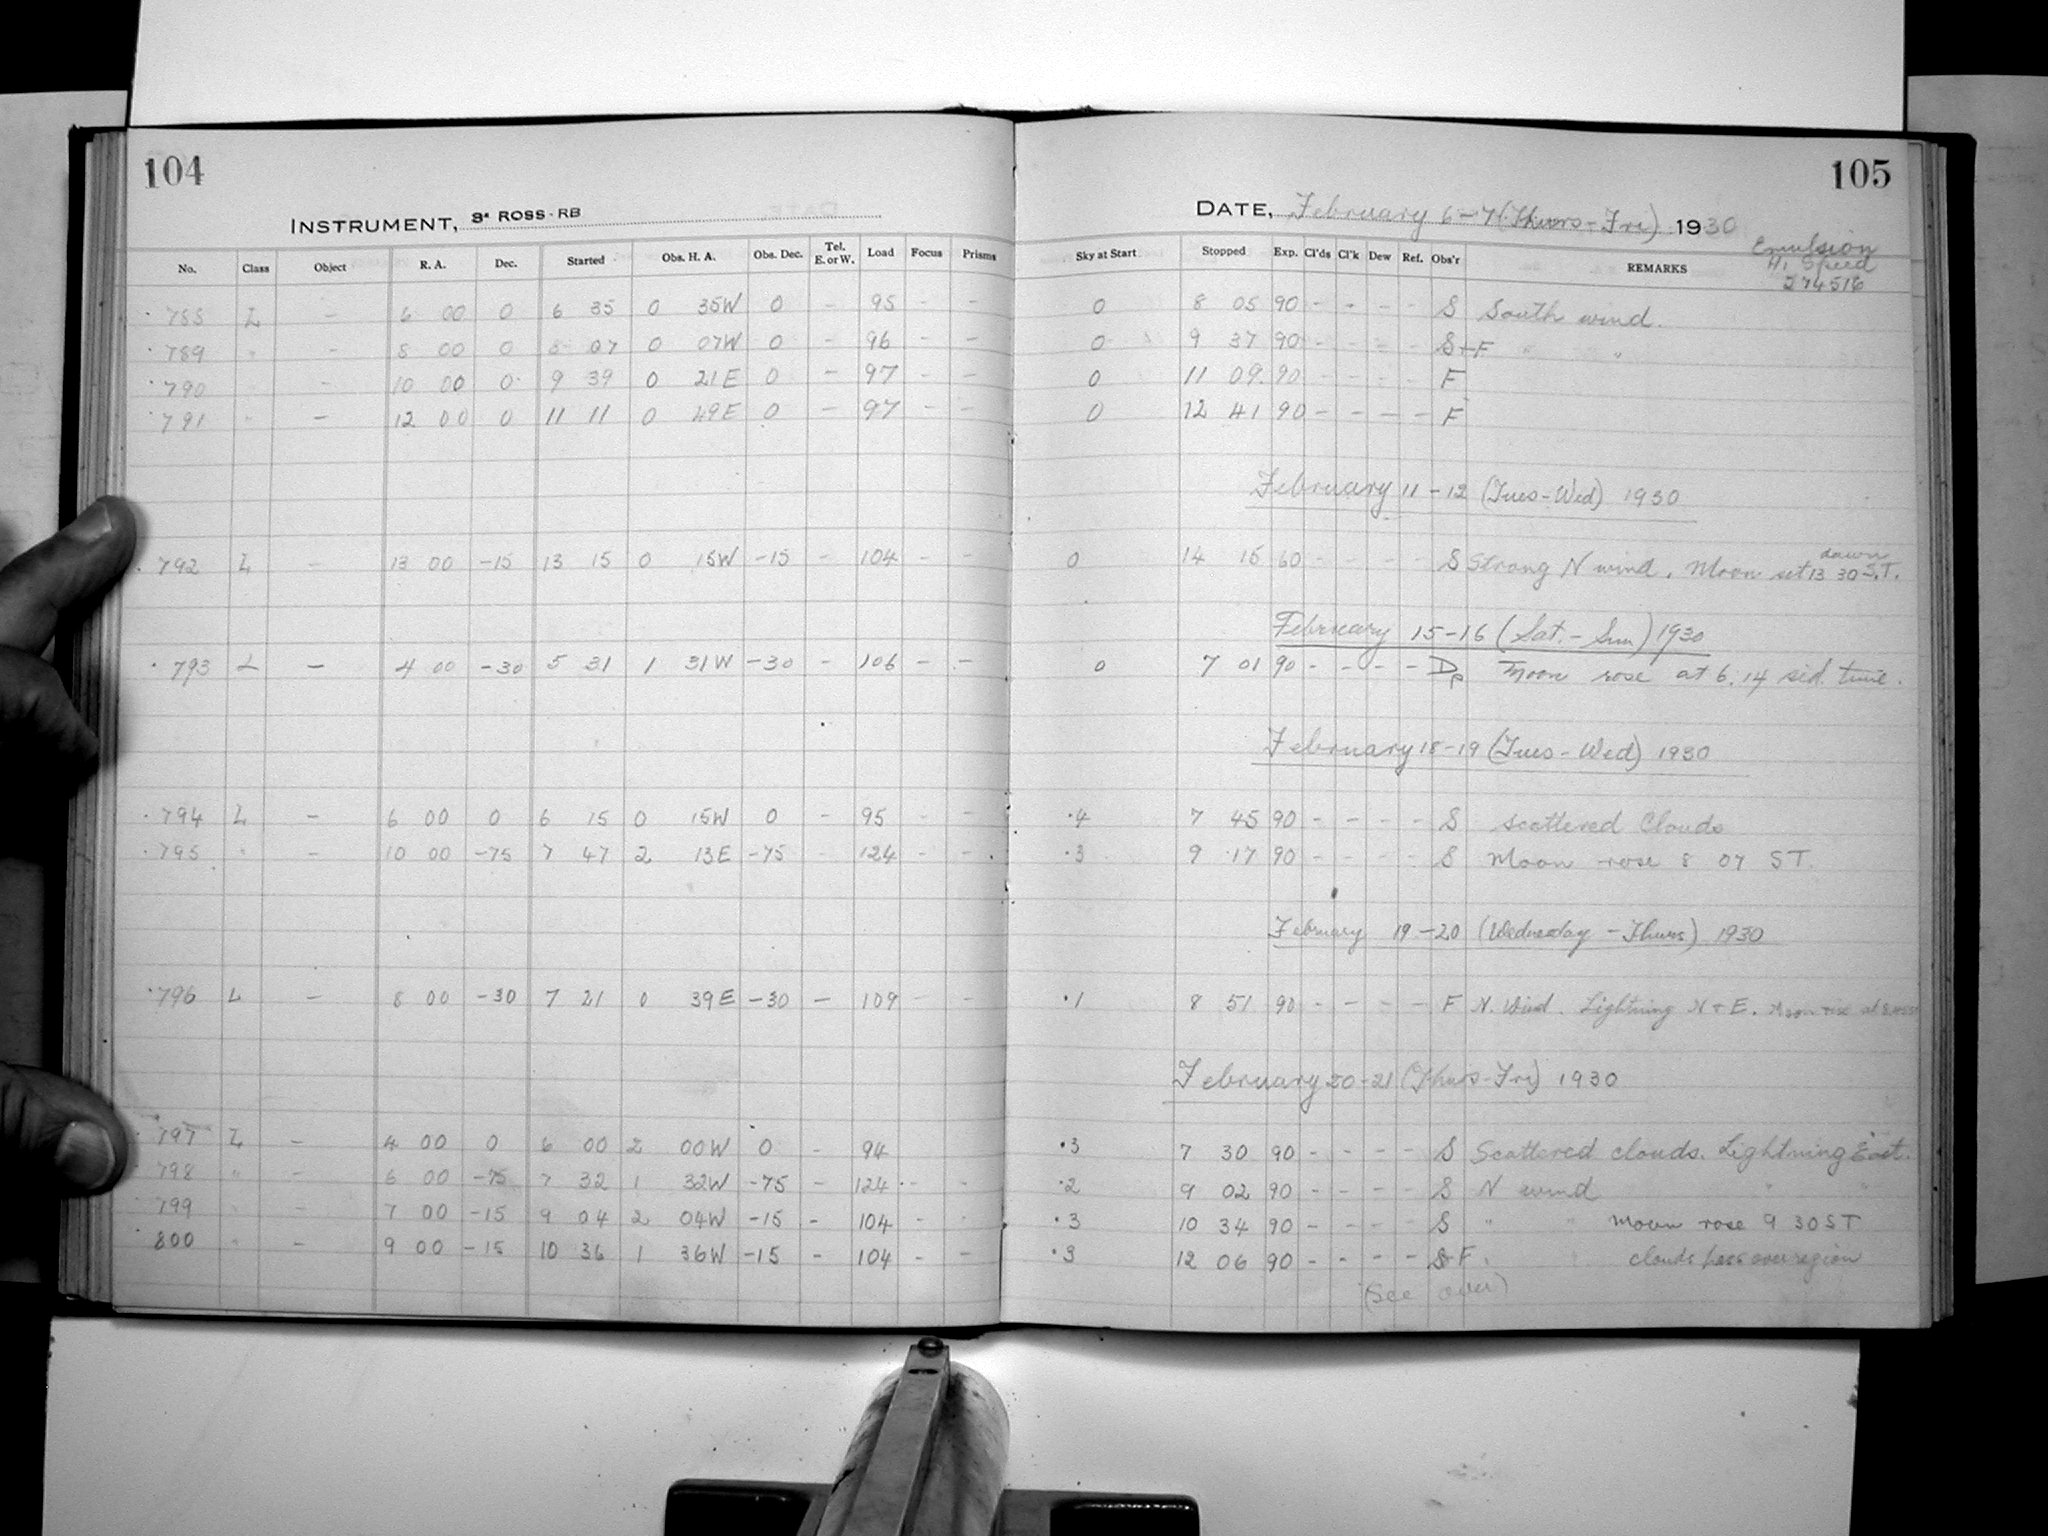 104
INSTRUMENT, 3" ROSS-RB
No. Class Object R. A. Dec. Started Obs. H. A. Obs. Dec. Tel. E. or W. Load Focus Prisms
788 L - 6 00 0 6 35 0 35W 0 - 95 - -
789 " - 8 00 0 8 07 0 07W 0 - 96 - -
790 " - 10 00 0 9 39 0 21E 0 - 97 - -
791 " - 12 00 0 11 11 0 49E 0 - 97 - -
792 L - 13 00 -15 13 15 0 15W -15 - 104 - -
793 L - 4 00 -30 5 31 1 31W -30 - 106 - -
794 L - 6 00 0 6 15 0 15W 0 - 95 - -
795 " - 10 00 -75 7 47 2 13E -75 124 - -
796 L - 8 00 -30 7 21 0 39E -30 - 109 - -
797 L - 4 00 0 6 00 2 00W 0 - 94
798 " - 6 00 -75 7 32 1 32W -75 - 124 - -
799 " - 7 00 -15 9 04 2 04W -15 - 104 - -
800 " - 9 00 -15 10 36 1 36W -15 - 104 - -
105
DATE, February 6-7 (Thurs-Fri) 1930
Emulsion
Hi Speed
274516
Sky at Start Stopped Exp. Cl'ds Cl'k Dew Ref. Obs'r REMARKS
0 8 05 90 - - - - S South wind.
0 9 37 90 - - - - S+F " "
0 11 09 90 - - - - F
0 12 41 90 - - - - F
February 11-12 (Tues-Wed) 1930
dawn
0 14 15 60 - - - - S Strong N wind. Moon set 13 30 S.T.
February 15-16 (Sat.-Sun) 1930
0 7 01 90 - - - - Dp Moon rose at 6:14 sid. time.
February 18-19 (Tues-Wed) 1930
.4 7 45 90 - - - - S Scattered Clouds
.3 9 17 90 - - - - S Moon rose 8 07 ST.
February 19-20 (Wednesday-Thurs) 1930
.1 8 51 90 - - - - F N. Wind. Lightning N+E. Moon rise at
February 20-21 (Thurs-Fri) 1930
.3 7 30 90 - - - - S Scattered clouds. Lightning East.
.2 9 02 90 - - - - S N wind " "
.3 10 34 90 - - - - S " " Moon rose 9 30 ST
.3 12 06 90 - - - - S+F " " clouds pass over region
(See over)